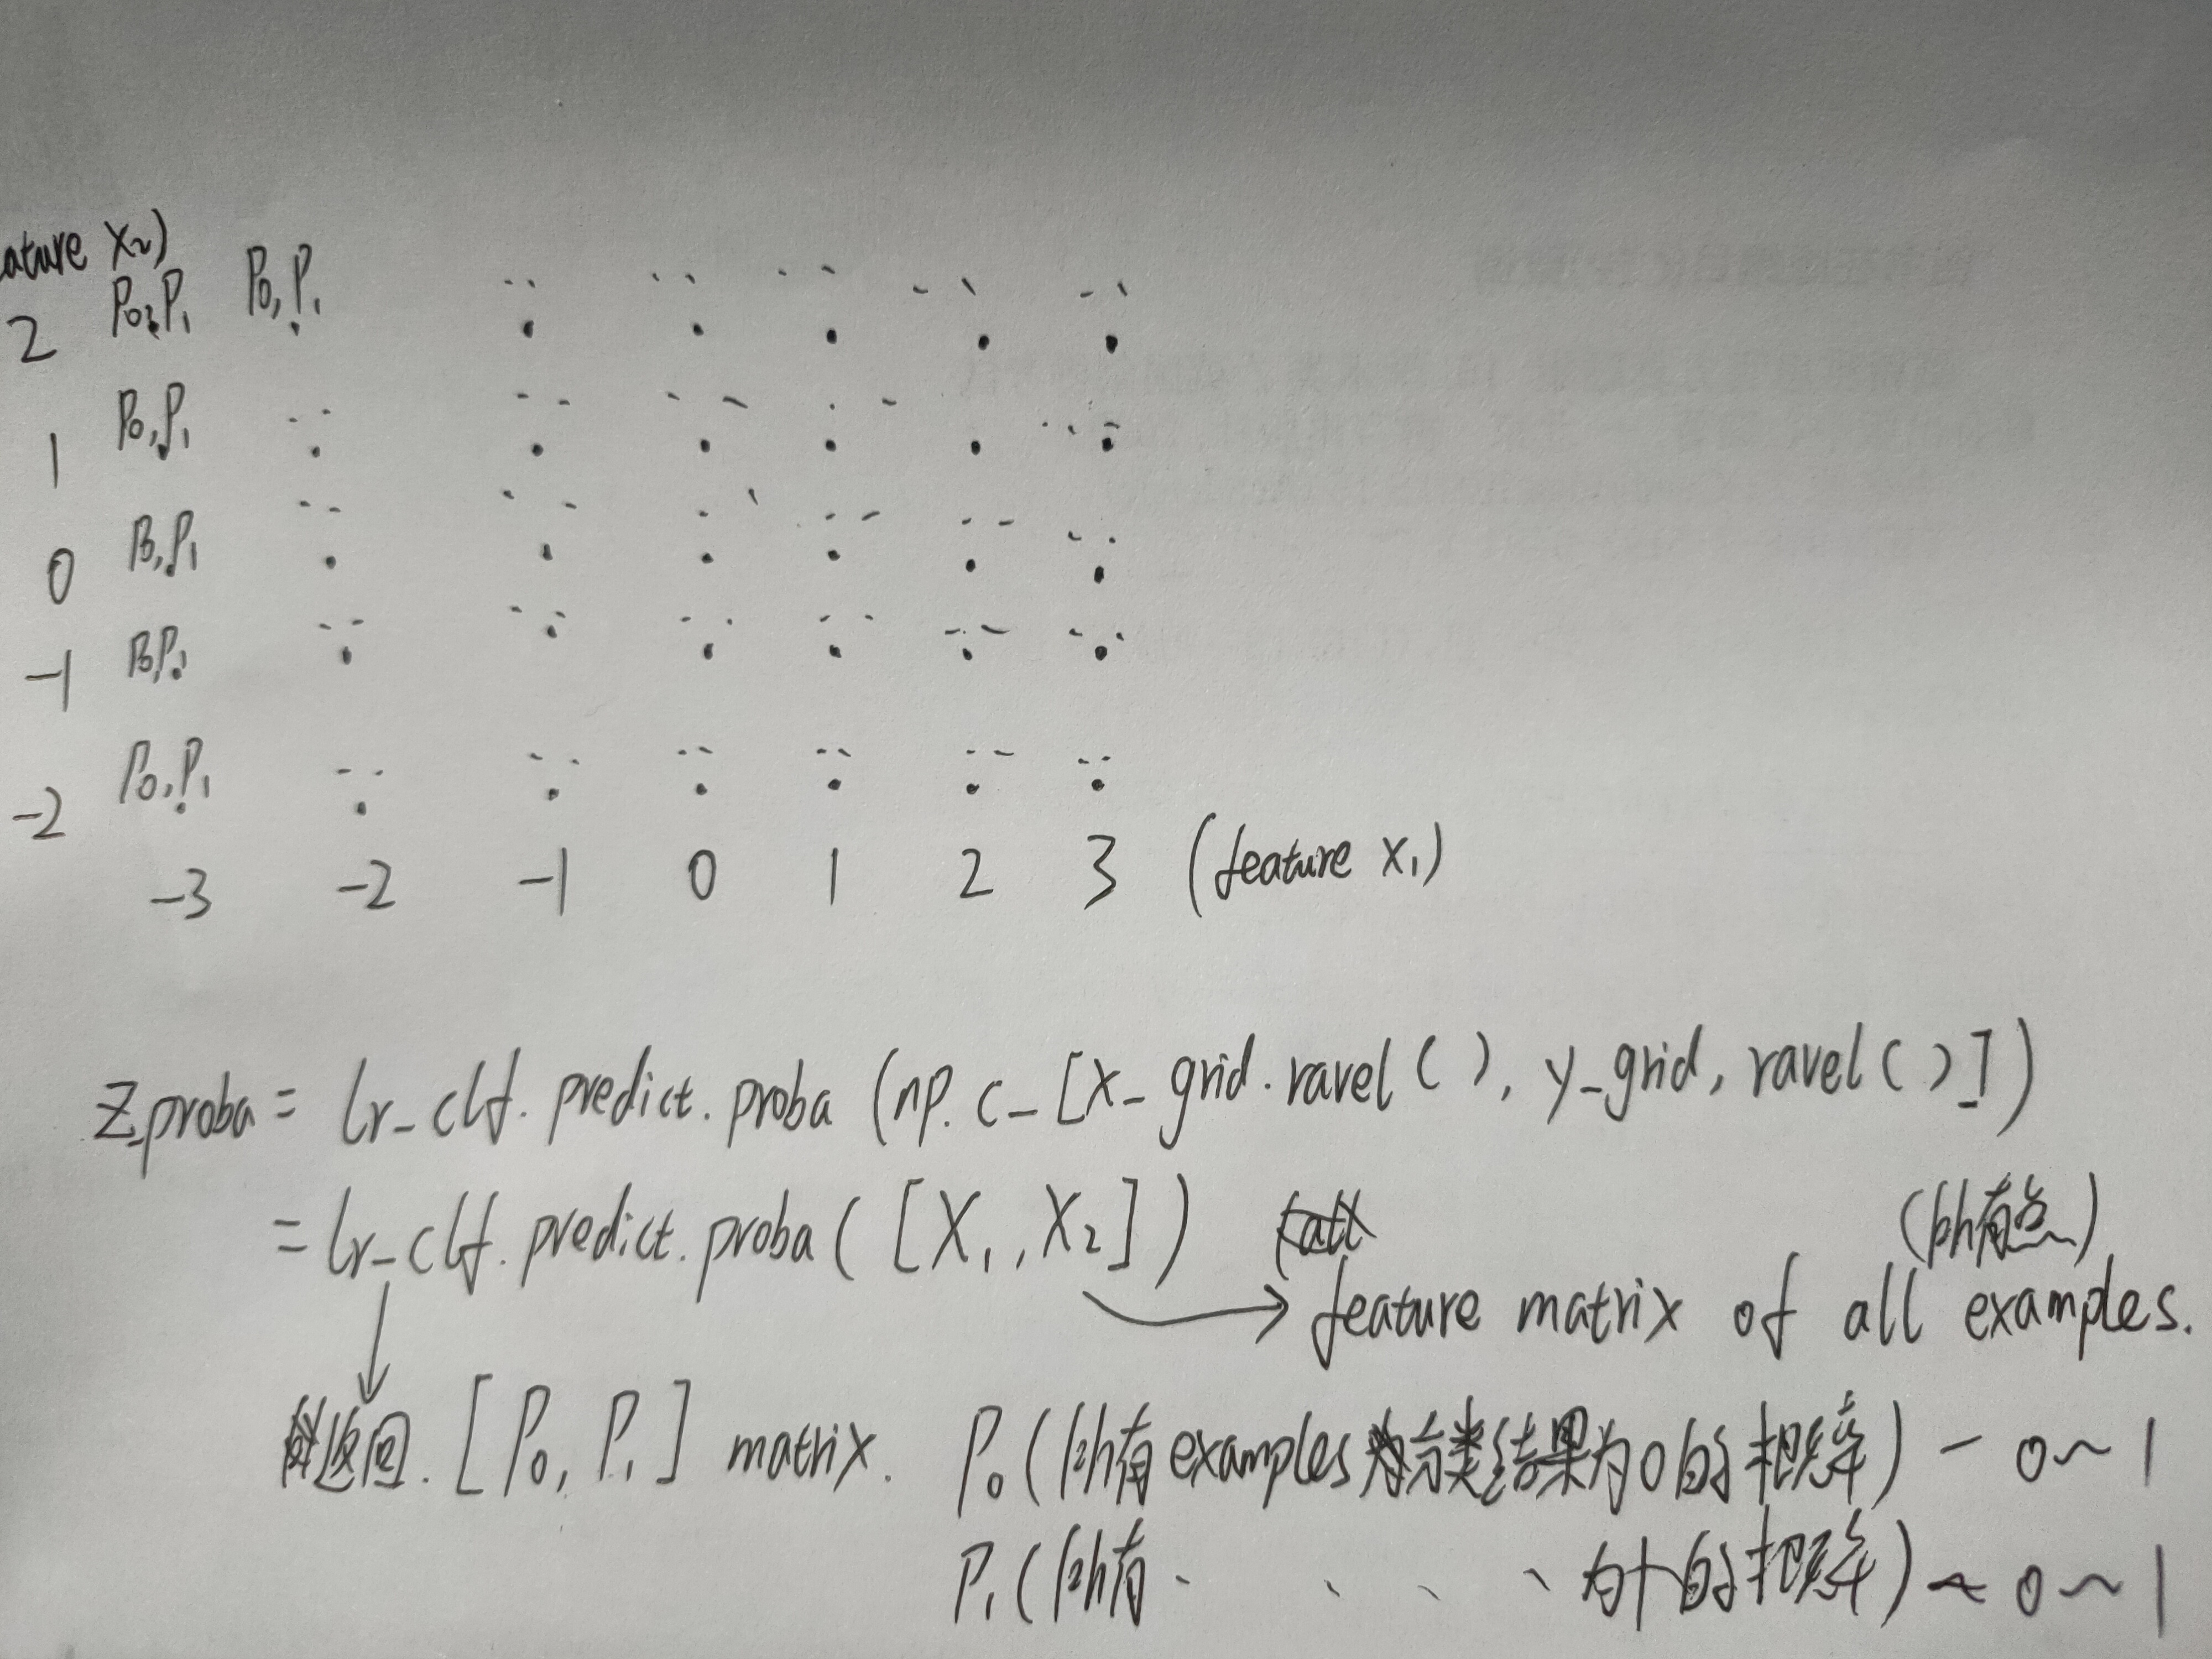 ature X₂)
2 P₀,P₁ P₀,P₁
1 P₀,P₁
0 P₀,P₁
-1 P₀,P₁
-2 P₀,P₁
-3 -2 -1 0 1 2 3 (feature X₁)
Z_proba = lr_clf.predict.proba (np.c_[X_grid.ravel( ), y_grid, ravel( )])
= lr_clf.predict.proba ( [X₁, X₂] )
(所有点)
feature matrix of all examples.
返回. [P₀, P₁] matrix. P₀(所有examples分类结果为0的概率) - 0~1
P₁(所有 . . . . 为1的概率) ~ 0~1